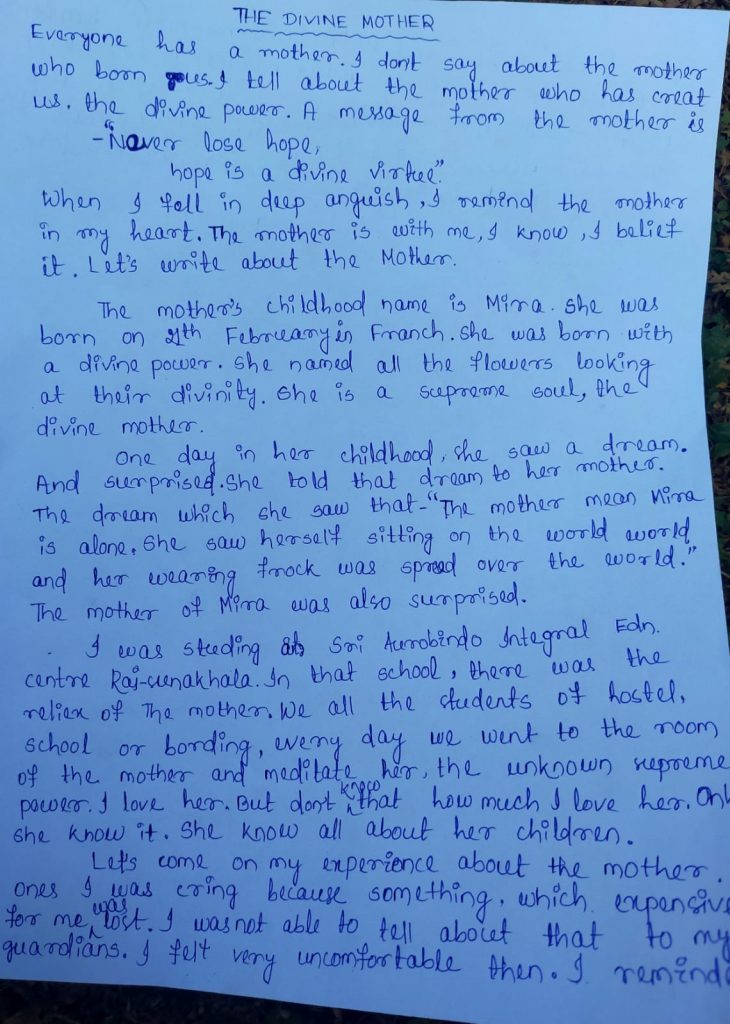 THE DIVINE MOTHER
Everyone has a mother. I dont say about the mother
who born us. I tell about the mother who has creat
us. the divine power. A message from the mother is
- "Never lose hope,
hope is a divine virtue".
When I fell in deep anguish, I remind the mother
in my heart. The mother is with me, I know, I belief
it. Let's write about the Mother.
The mother's childhood name is Mira. She was
born on 21th February in Franch. She was born with
a divine power. She named all the flowers looking
at their divinity. She is a supreme soul, the
divine mother.
One day in her childhood, she saw a dream.
And surprised. She told that dream to her mother.
The dream which she saw that - "The mother mean Mira
is alone. She saw herself sitting on the world world
and her wearing frock was spread over the world."
The mother of Mira was also surprised.
I was studing at Sri Aurobindo Integral Edn.
centre Raj-sunakhala. In that school, there was the
reliex of The mother. We all the students of hostel,
school or bording, every day we went to the room
of the mother and meditate her, the unknown supreme
power. I love her. But dont know that how much I love her. Onl
she know it. She know all about her children.
Let's come on my experience about the mother.
ones I was cring because something, which expensive
for me was lost. I was not able to tell about that to my
guardians. I felt very uncomfortable then. I remind